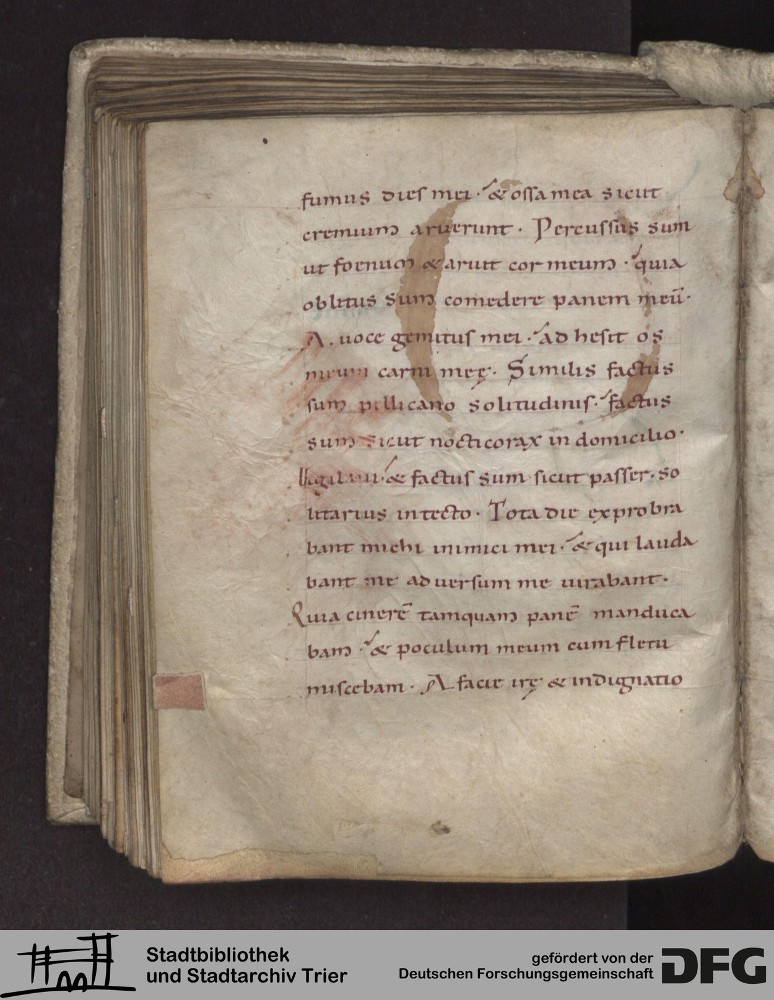 fumus dies mei · & ossa mea sicut
cremium aruerunt · Percussus sum
ut foenum & aruit cor meum · quia
oblitus sum comedere panem meū ·
A · uoce gemitus mei · ad hesit os
meum carni meę · Similis factus
sum pillicano solitudinis · factus
sum sicut nocticorax in domicilio ·
Uigilaui · & factus sum sicut passer · so
litarius in tecto · Tota die exprobra
bant michi inimici mei · & qui lauda
bant me aduersum me iurabant ·
Quia cinerē tamquam panē manduca
bam · & poculum meum cum fletu
miscebam · A facie irę & indignatio
Stadtbibliothek
und Stadtarchiv Trier
gefördert von der
Deutschen Forschungsgemeinschaft
DFG